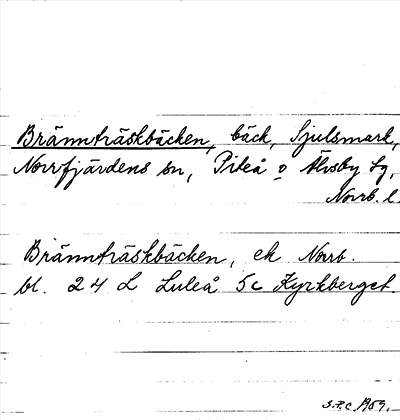 Brännträskbäcken, bäck, Sjulsmark,
Norrfjärdens sn, Piteå o Älvsby tg,
Norrb. l.
Brännträskbäcken, ek Norrb.
bl. 24 L Luleå 5c Kyrkberget.
S.P.C 1959.